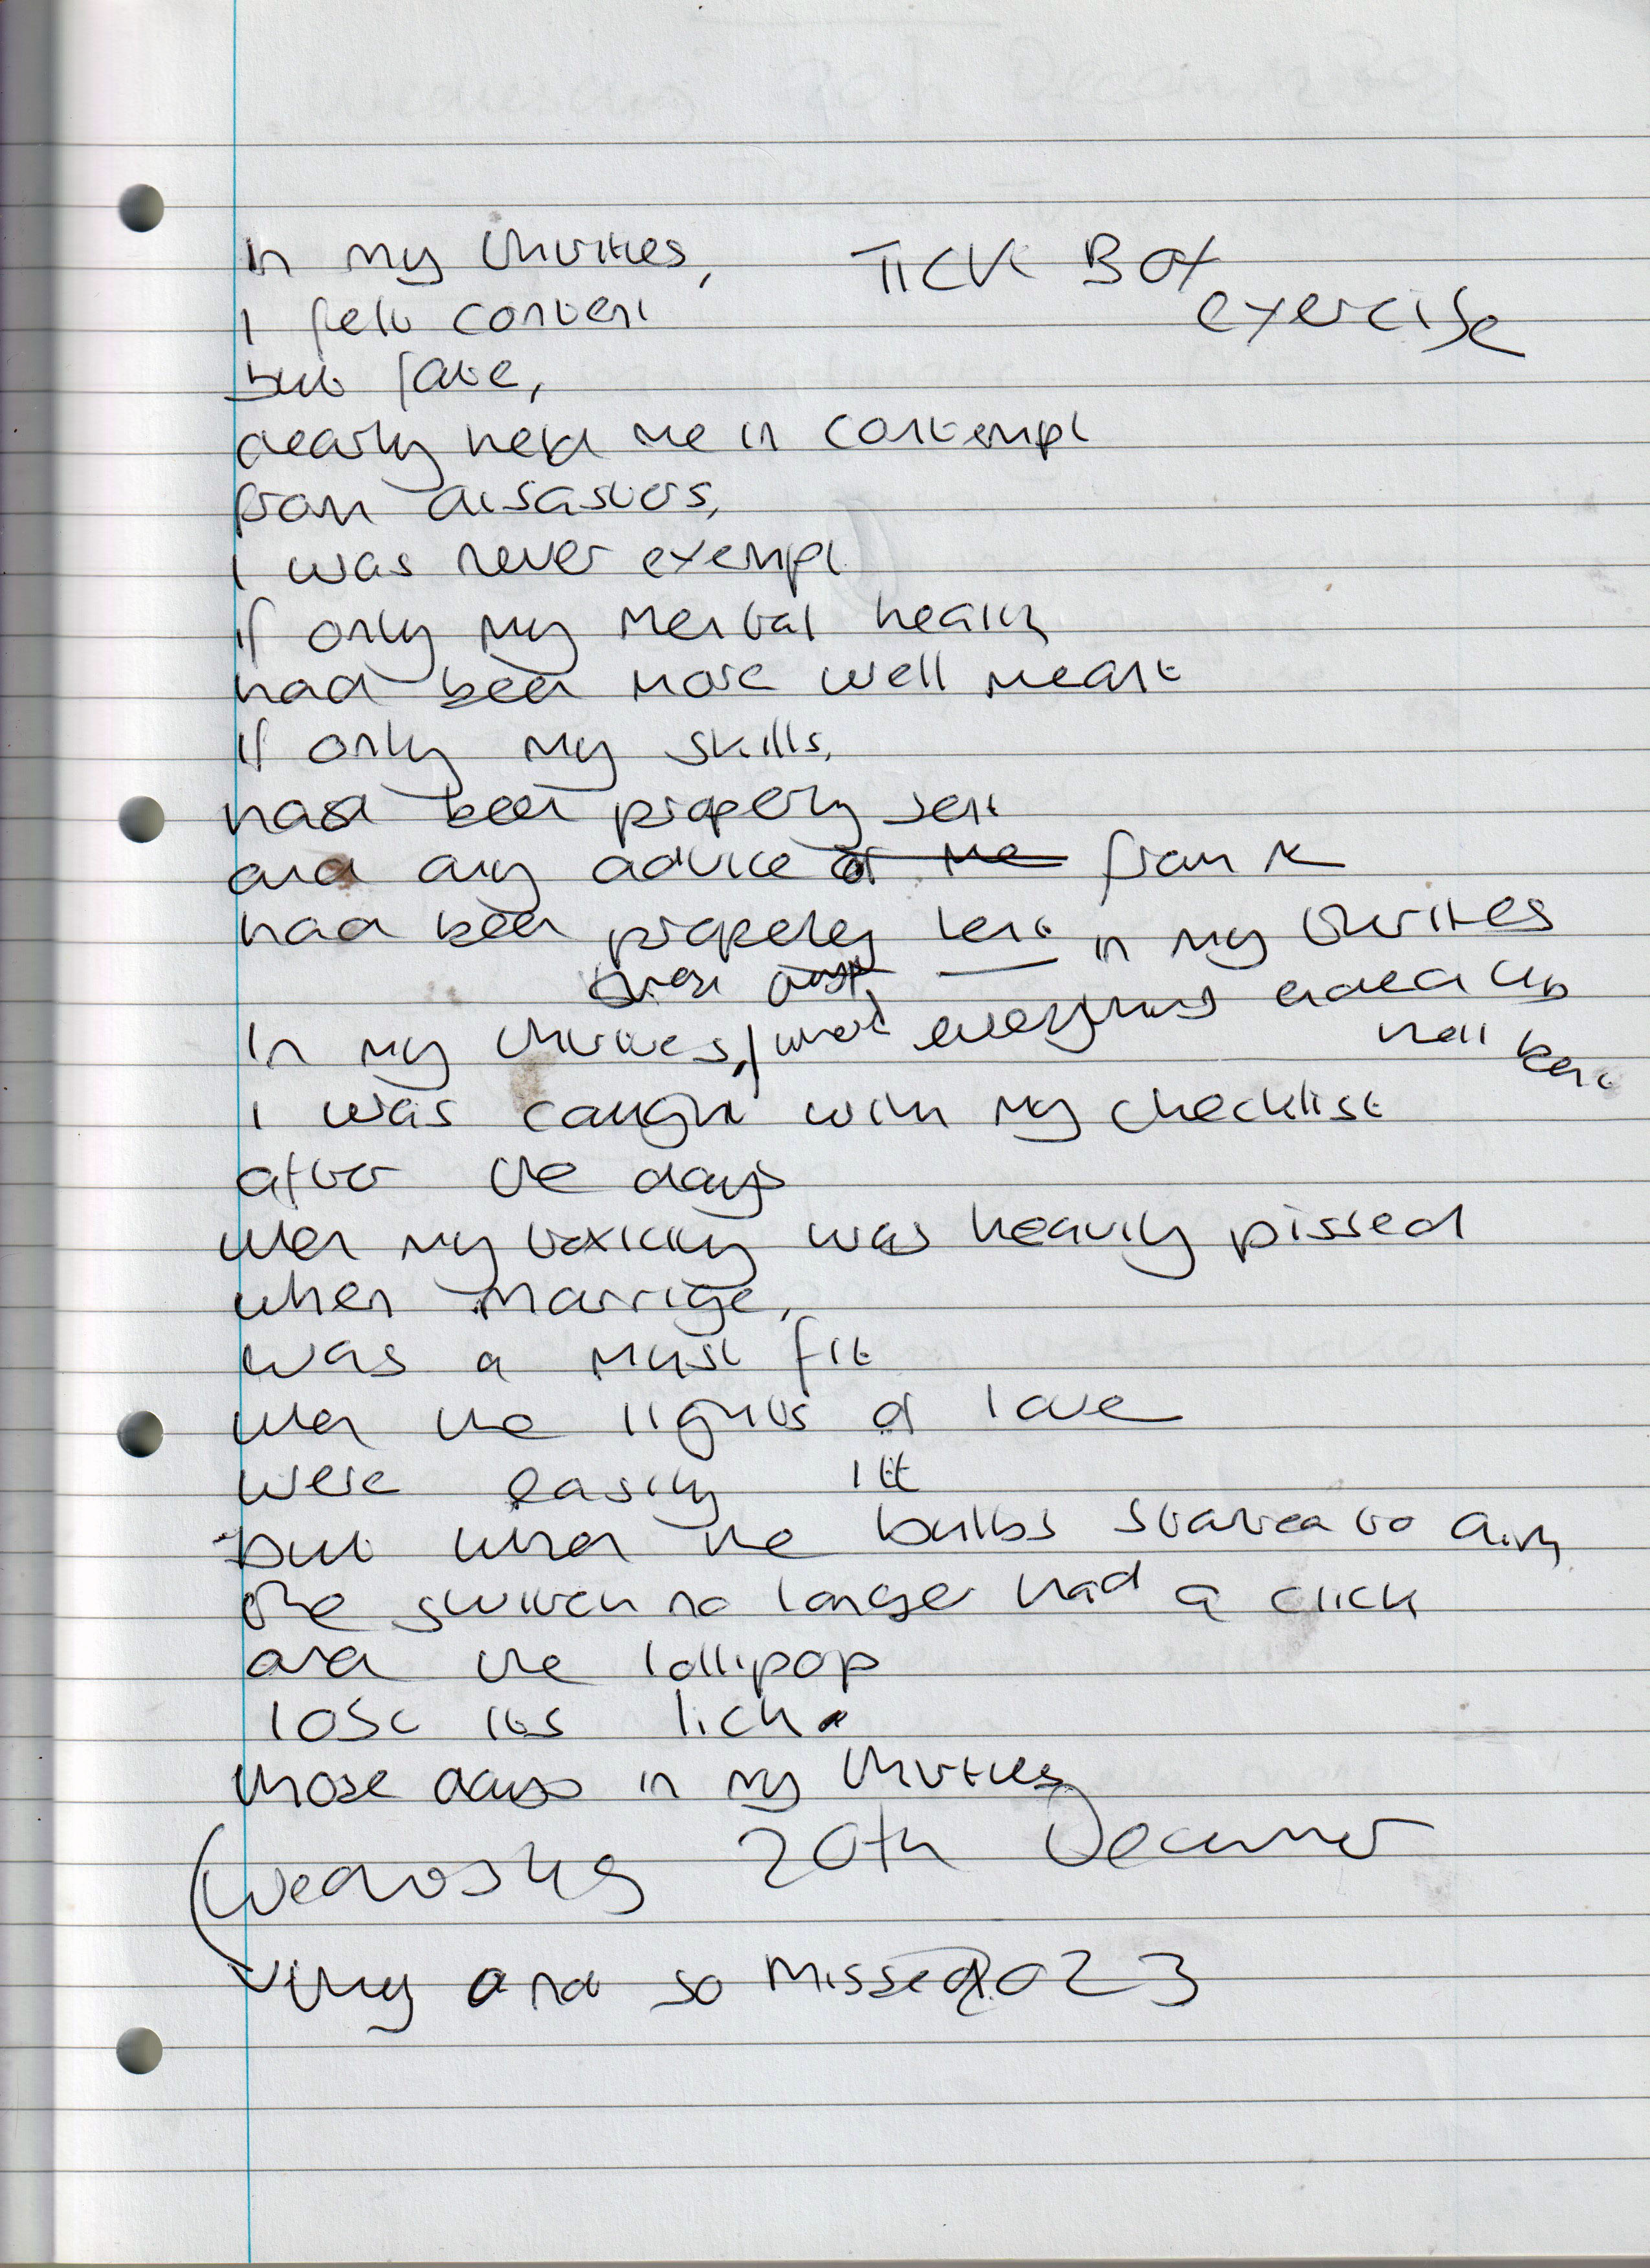 TICK BOX
exercise
In my thirties,
I felt content
but fate,
clearly held me in contempt
from disasters,
I was never exempt
if only my mental health
had been more well meant
if only my skills,
had been properly sent
and any advice of me from it
had been properly lent in my thirties
when everything ended up
hell bent
In my thirties,
I was caught with my checklist
after the days
when my toxicity was heavily pissed
when marrige,
was a must fit
when the lights of love
were easily lit
but when the bulbs started to dim,
the switch no longer had a click
and the lollipop
lost its lick.
those days in my thirties
(Wednesday 20th December
2023
and so missed